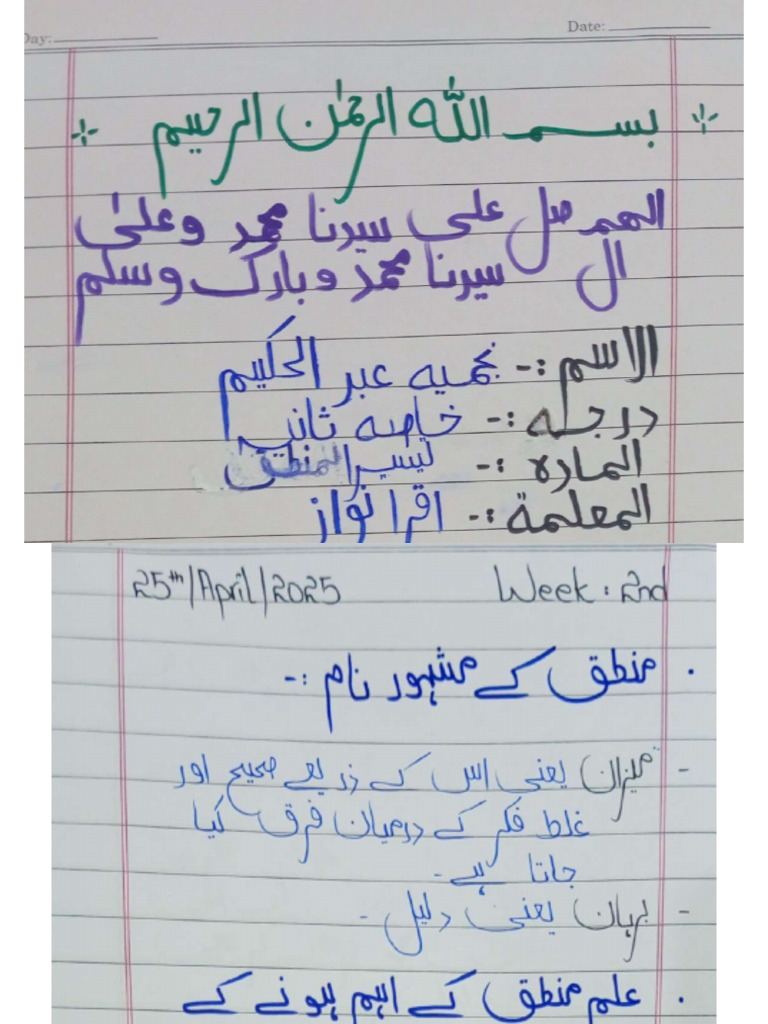 Day:
Date:
بسم الله الرحمٰن الرحیم
اللھم صل علی سیدنا محمد وعلیٰ
ال سیدنا محمد وبارک وسلم
الاسم :- نجمیه عبد الحکیم
درجه :- خاصه ثانیہ
المادہ :- تیسیر المنطق
المعلمة :- اقرا نواز
25th/April/2025 Week: 2nd
. منطق کے مشہور نام :-
- میزان یعنی اس کے ذریعے صحیح اور
غلط فکر کے درمیان فرق کیا
جاتا ہے۔
- برہان یعنی دلیل۔
. علم منطق کے اہم ہونے کے